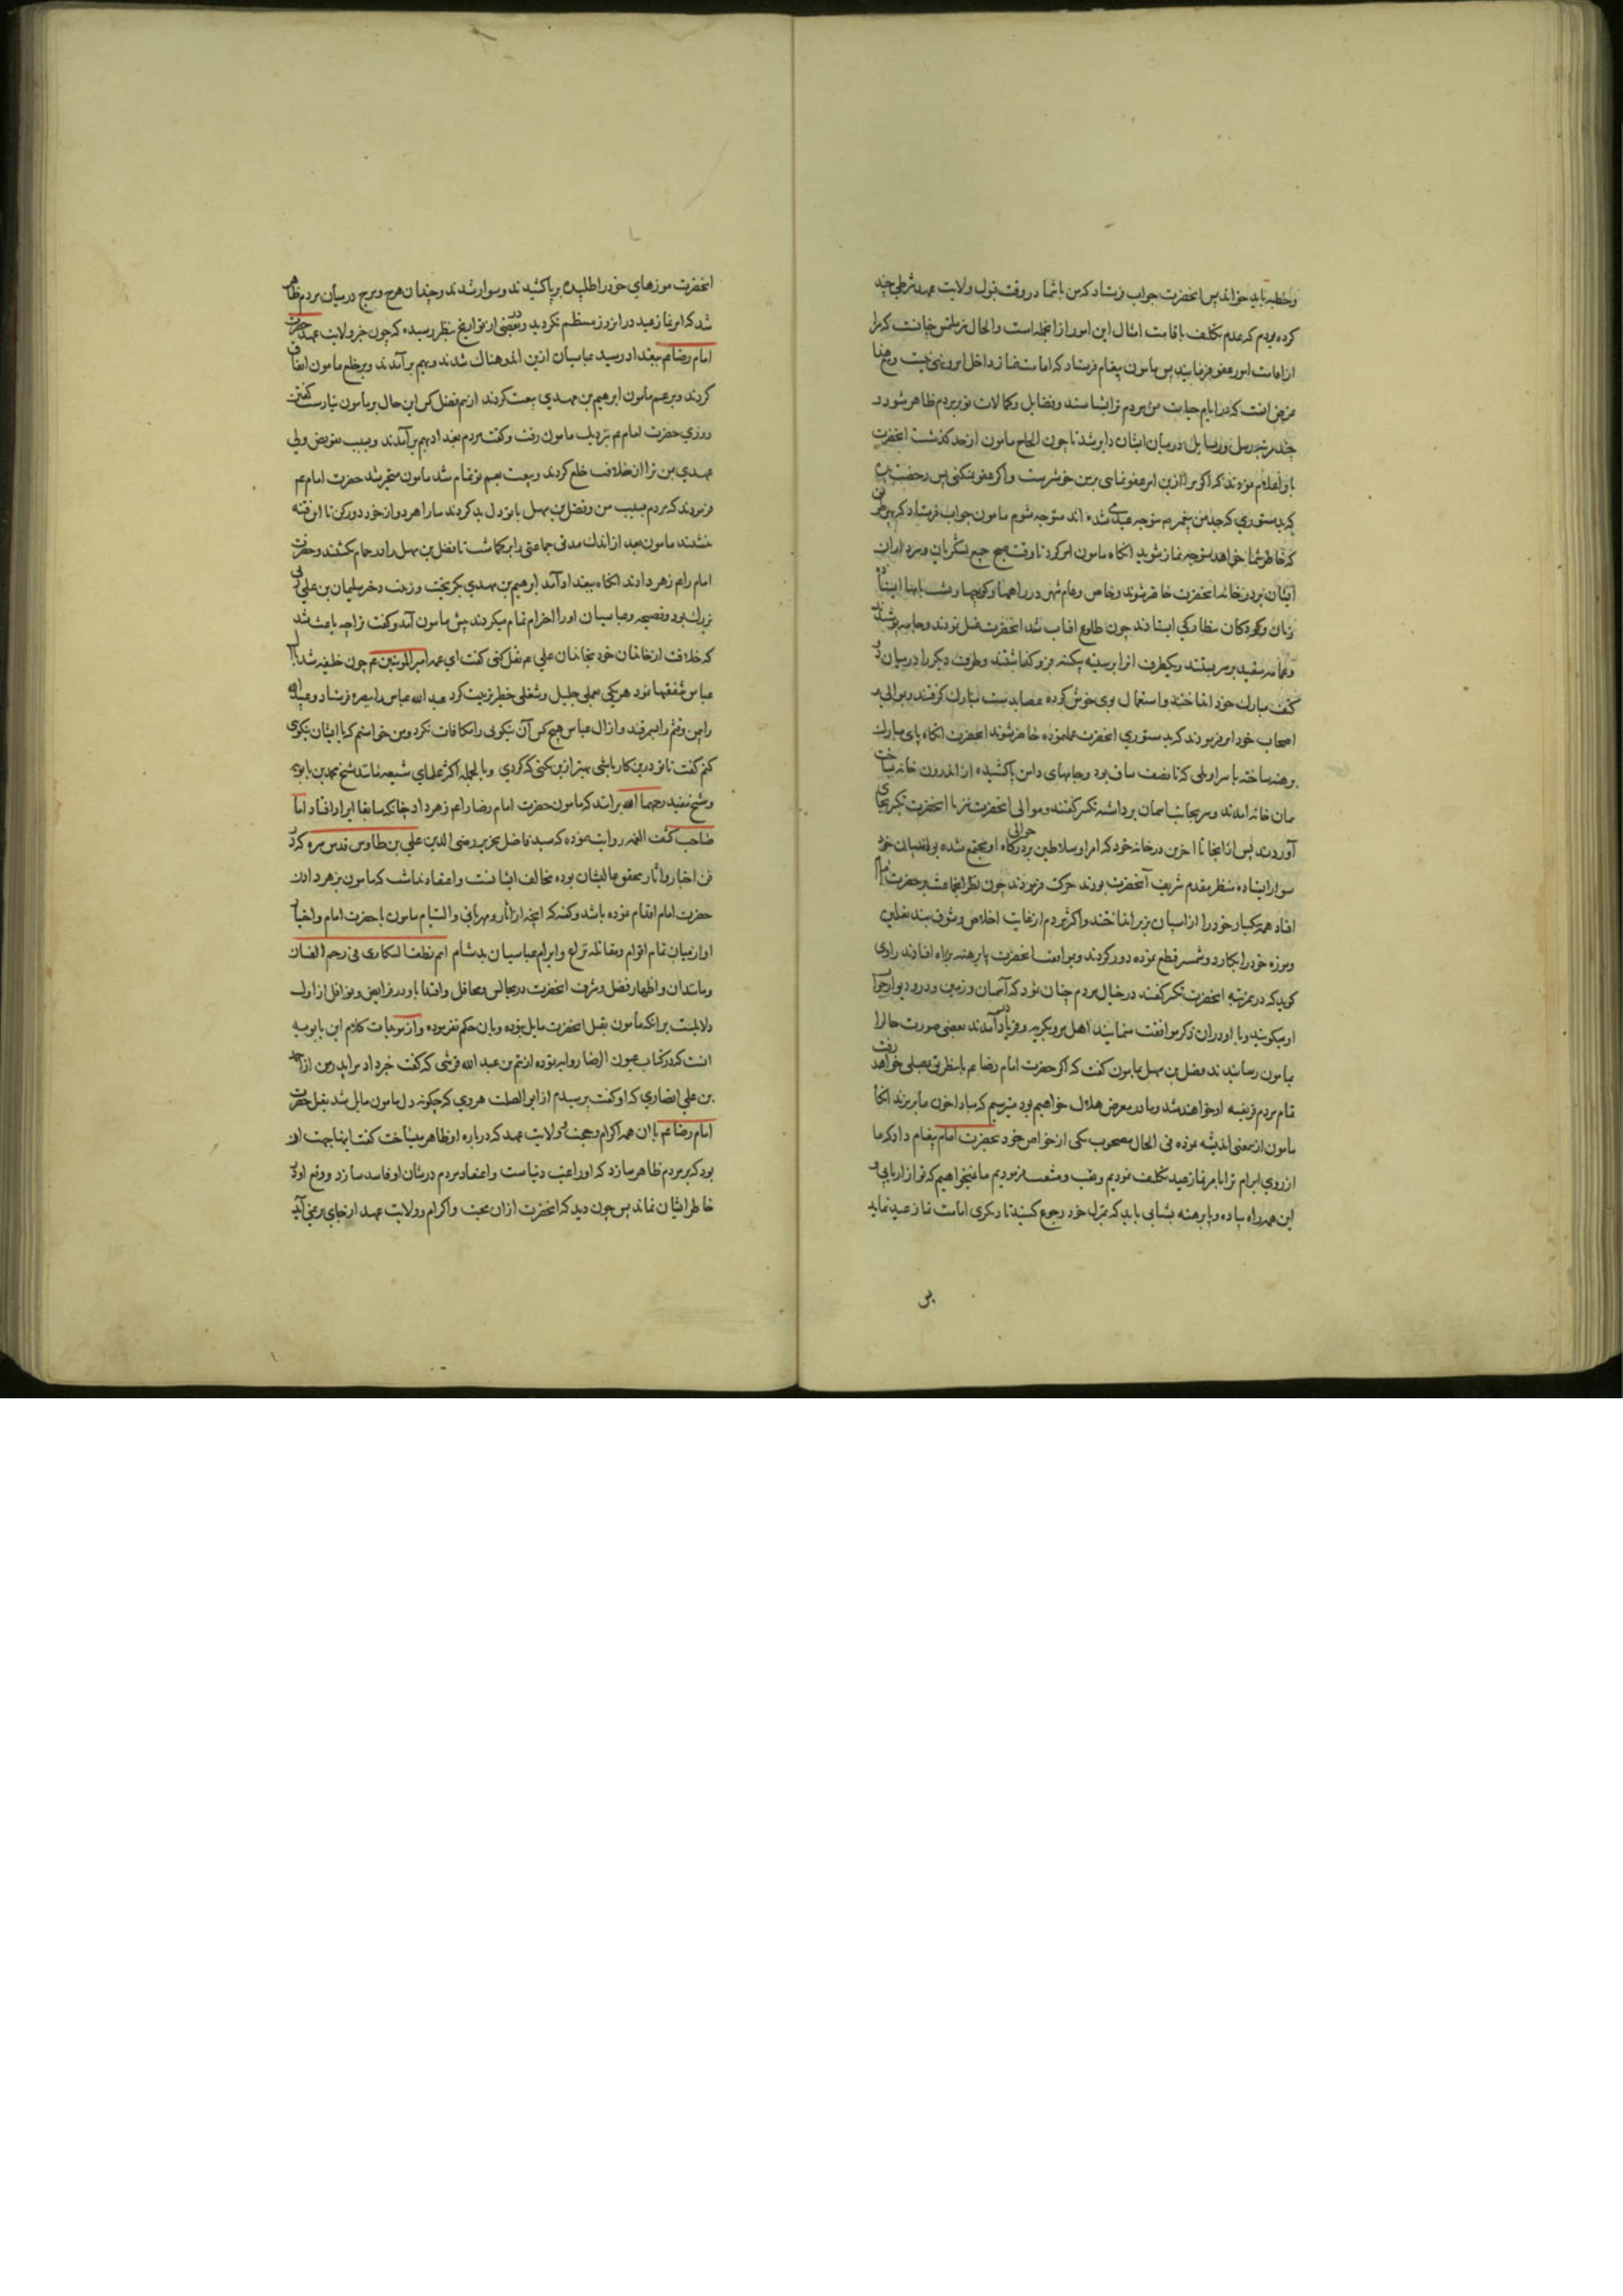 وخطبه باید خواند پس انحضرت جواب فرستاد که من باشما در وقت قبول ولایت عهد شرطی چند
کرده بودم که عدم تکلیف باقامت امثال این امور از انجمله است والحال نیز ملتمس چنانست که مرا
از امامت امور عفو فرمایید پس مامون پیغام فرستاد که امامت نماز داخل امر ونهی نیست
غرض انست که در ایام حیات من مردم ترا بشناسند وفضایل وکمالات تو بر مردم ظاهر شود و
چند مرتبه رسل ورسایل در میان ایشان دایر شد تا چون الحاح مامون از حد کذشت انحضرت
باو اعلام نمودند که اکر مرا ازین امر عفو نمایی بر من خوشتر است واکر عفو نمیکنی پس رخصت ده
که بدستوری که جد من پیغمبر متوجه عیدگاه شده اند متوجه شوم مامون جواب فرستاد که بهر طریق
که خاطر شما خواهد متوجه نماز شوید انکاه مامون امر کرد تا وقت صبح جمیع لشکریان وسرداران
ایشان بر در خانه انحضرت حاضر شوند وخاص وعام شهر در راهها وکوچها وپشت بامها
زنان وکودکان بنظارکی ایستادند چون طلوع افتاب شد انحضرت غسل نمودند وجامه پوشیدند
وعمامه سفید بر سر بستند ویکطرف انرا بر سینه بیکینه فرو کذاشتند وطرف دیکر را در میان دو
کتف مبارک خود انداختند واستعمال بوی خوش کرده عصا بدست مبارک کرفتند وموالی و
اصحاب خود امر فرمودند که بدستوری انحضرت عمل نموده حاضر شوند انحضرت انکاه پای مبارک
برهنه ساخته با سراویلی که تا نصف ساق بود وجامهای دامن پاکشیده از اندرون خانه
میان خانه امدند وسر بجانب اسمان برداشته تکبیر کفتند وموالی انحضرت نیز با انحضرت تکبیر بجای
آوردند پس از انجا تا اخرین در خانه خود که امرا وسلاطین بر درکاه او مجتمع شده بودند
سوار ایستاده منتظر مقدم شریف آنحضرت بودند حرکت فرمودند چون نظر انجماعت بر حضرت امام
افتاد همه بیکبار خود را از اسپان بزیر انداختند واکثر مردم از غایت اخلاص وشوق بند نعلین
وموزه خود را بکارد وشمشیر قطع نموده دور کردند وبموافقت انحضرت پا برهنه براه افتادند راوی
کوید که در هر مرتبه انحضرت تکبیر کفتند در خیال مردم چنان نمود که آسمان وزمین ودر ودیوار جواب
او میکویند وبا او در ان ذکر موافقت مینمایند اهل مرو بکریه وفریاد در آمدند بعضی صورت حال را
بمامون رسانیدند وفضل بن سهل بمامون کفت که اکر حضرت امام رضا عم باینطریق بمصلی خواهد رفت
تمام مردم فریفته او خواهند شد وما در معرض هلاک خواهیم بود میترسیم که مبادا خون ما بریزند انکاه
مامون از نمعنی اندیشه نموده فی الحال مصحوب یکی از خواص خود بحضرت امام پیغام داد که ما
از روی ابرام ترا بامر نماز عید تکلیف نمودیم وتعب ومشقت فرمودیم ما نمیخواهیم که تو
این همه راه پیاده وپا برهنه بشتابی باید که بمنزل خود رجوع کنید تا دیکری امامت نماز عید نماید
بر
انحضرت موزهای خود را طلبیده برپا کشیدند وسوار شدند وچندان هرج ومرج در میان مردم ظاهر
شد که امر نماز عید در انروز منتظم نکردید ودر بعضی از تواریخ بنظر رسیده که چون خبر ولایت عهد حضرت
امام رضا عم ببغداد رسید عباسیان ازین اندوهناک شدند وبهم بر آمدند وبر خلع مامون اتفاق
کردند وبر عم مامون ابرهیم بن مهدی بیعت کردند از بیم فضل کس این حال بر مامون نیارست کفتن
روزی حضرت امام عم نزدیک مامون رفت وکفت مردم بغداد بهم بر آمدند وبسبب تفویض ولی
عهدی بمن ترا از خلافت خلع کردند وبیعت بعم تو تمام شد مامون متحیر شد حضرت امام عم
فرمودند که مردم بسبب من وفضل بن سهل با تو دل بد کردند ما را هر دو از خود دور کن تا این فتنه
بنشیند مامون بعد از اندک مدتی جماعتی را برکماشت تا فضل بن سهل را در حمام بکشتند وحضرت
امام را هم زهر دادند انکاه ببغداد آمد ابرهیم بن مهدی بکریخت وزینب دختر سلیمان بن علی که
بزرک بود وفصیحه وعباسیان او را احترام تمام میکردند پیش مامون آمد وکفت ترا چه باعث شد
که خلافت از خاندان خود بخاندان علی عم نقل کنی کفت ای عمه امیر المومنین عم چون خلیفه شد با
عباس شفقتها نمود هر یکی بعملی جلیل وشغلی خطیر تربیت کرد عبد الله عباس را ببصره فرستاد وعبید الله
را بیمن وقثم را بسمرقند واز ال عباس هیچکس آن نیکویی را مکافات نکرد ومن خواستم که با ایشان نیکوی
کنم کفت تا تو درین کار باشی بهتر ازین کنی که کردی وبالجمله اکثر علمای شیعه مانند شیخ محمد بن بابویه
وشیخ مفید رحمهما الله برانند که مامون حضرت امام رضا را عم زهر داد چنانکه سابقا ایراد افتاد اما
صاحب کشف الغمه روایت نموده که سید فاضل نحریر رضی الدین علی بن طاوس قدس سره که در
فن اخبار واثار بحقوق عالیشان بوده مخالف ایشانست واعتقاد نداشت که مامون بزهر دادن
حضرت امام اقدام نموده باشد وکفته که انچه از آثار ومهربانی والتیام مامون با حضرت امام واختیار
او از میان تمام اقوام
وماندن واظهار فضل وشرف انحضرت در مجالس ومحافل واقتدا باو در فرایض ونوافل از اول
دلایلست بر انکه مامون بقتل انحضرت مایل نبوده وبان حکم نفرموده واز موجبات کلام ابن بابویه
انست که در کتاب عیون الرضا روایت نموده از تمیم بن عبد الله قرشی که کفت خبر داد مرا پدر من از احمد
بن علی انصاری که او کفت پرسیدم از ابو الصلت هروی که چکونه دل مامون مایل شد بقتل حضرت
امام رضا عم با ان همه اکرام ومحبت وولایت عهد که در باره او ظاهر میساخت کفت اینها بجهت ان
بود که بر مردم ظاهر سازد که او راغب دنیاست واعتقاد مردم در شان او فاسد سازد ووقع او در
خاطر ایشان نماند پس چون دید که انحضرت از ان محبت واکرام وولایت عهد از جای بر نمی آید